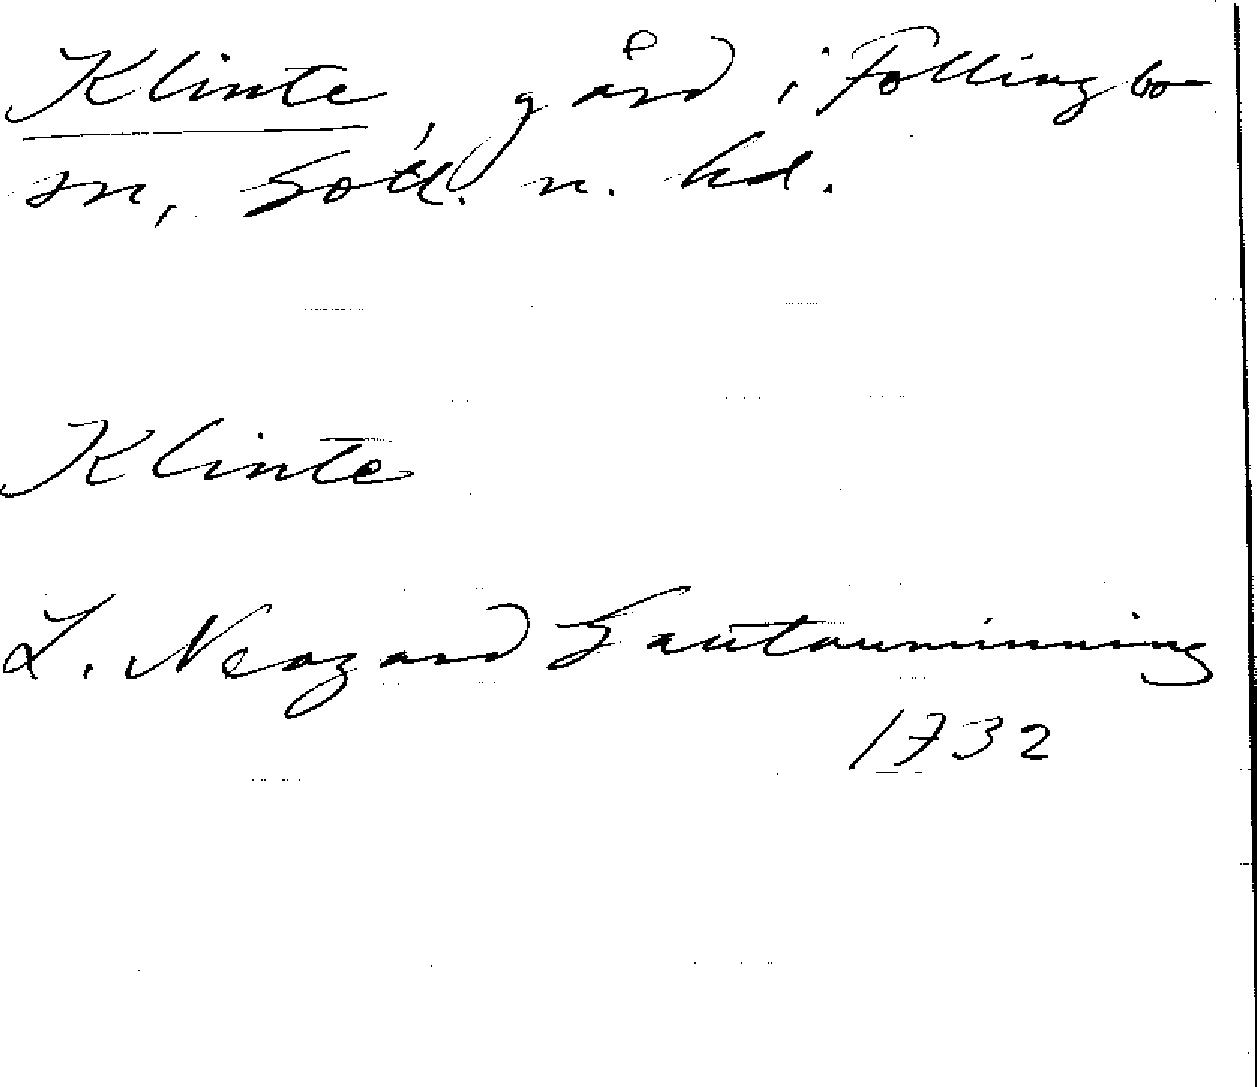 Klinte, gård i Follingbo
sn, Gotl. n. hd.
Klinte
L. Neogard Gautauminning
1732